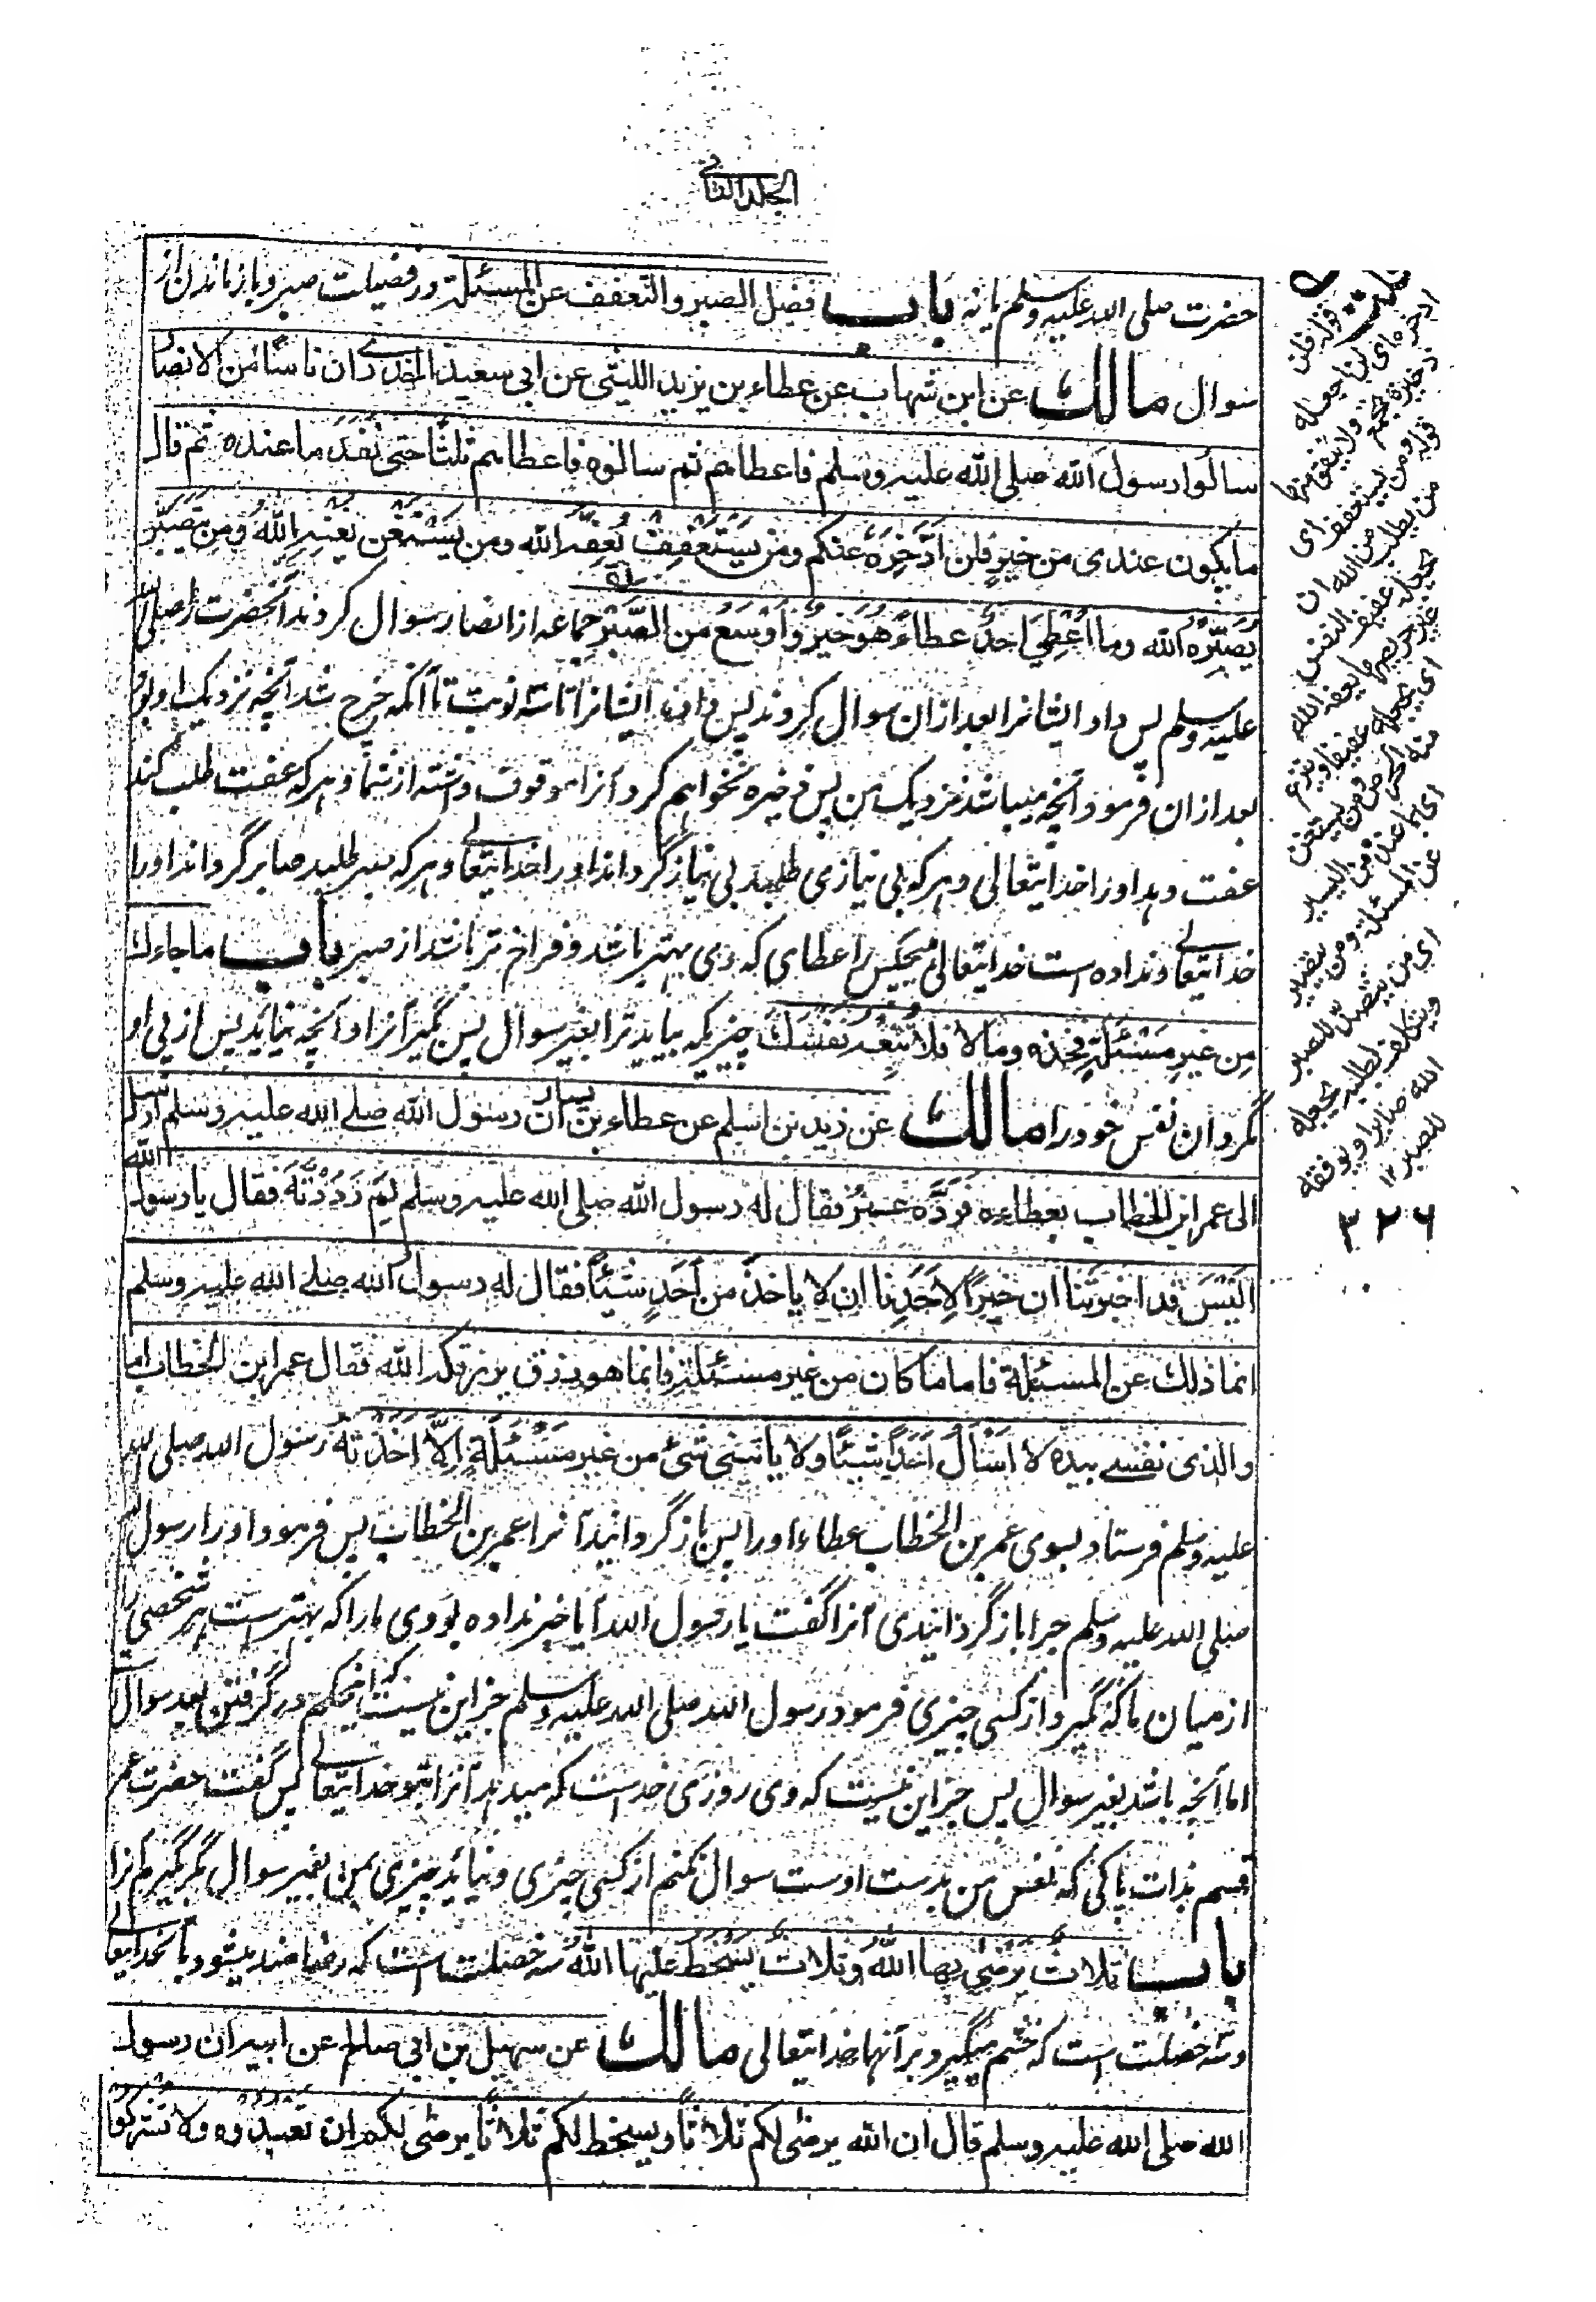 الجلد الثانی
حضرت صلی الله علیه وسلم یا نه باب فضل الصبر والتعفف عن المسئلة در فضیلت صبر و باز ماندن از
سوال مالك عن ابن شهاب عن عطاء بن یزید اللیثی عن ابی سعید الخدری ان ناسًا من الانصار
سالوا رسول الله صلی الله علیه وسلم فاعطاهم ثم سالوه فاعطاهم ثلثًا حتی نفد ما عنده ثم قال
ما یکون عندی من خیرٍ فلن ادَّخِرَهُ عنکم ومن یَستَعْفِفْ یُعِفَّهُ الله ومن یَسْتَغْنِ یُغْنِهِ اللهُ ومن یتصبّر
یُصَبِّرْهُ الله وما اُعْطِیَ احدٌ عطاءً هُوَ خیرٌ وأَوْسَعُ من الصَّبْرِ جماعه از انصار سوال کردند آنحضرت را صلی الله
علیه وسلم پس داد ایشانرا بعد ازان سوال کردند پس داد ایشانرا تا سه نوبت تا آنکه خرج شد آنچه نزدیک او بود
بعد ازان فرمود آنچه میباشد نزدیک من پس ذخیره نخواهم کرد آنرا موقوف داشته از شما و هر که عفت طلب کند
عفت دهد او را خدایتعالی و هر که بی نیازی طلبد بی نیاز گرداند او را خدایتعالی و هر که صبر طلبد صابر گرداند او را
خدایتعالی و نداده است خدایتعالی هیچکس را عطای که وی بهتر باشد و فراخ تر باشد از صبر باب ما جاءك
مِن غیرِ مَسْئَلَةٍ فخذه وما لا فلا تُتْبِعْهُ نَفْسَكَ چیزیکه بیاید ترا بغیر سوال پس بگیر آنرا و آنچه نیاید پس از پی او
مگردان نفس خود را مالك عن زید بن اسلم عن عطاء بن یسار ان رسول الله صلے الله علیه وسلم ارسل
الی عمر ابن الخطاب بعطاءه فَرَدَّه عمرُ فقال له رسول الله صلی الله علیه وسلم لِمَ رَدَدْتَهُ فقال یا رسول الله
الَیْسَ قد اخبرتنا ان خیرًا لِاَحَدِنا ان لا یاخذ من اَحَدٍ شیئًا فقال له رسول الله صلے الله علیه وسلم
انما ذلك عن المسئلة فاما ما کان من غیر مسئلةٍ فانما هو رزق یرزقکه الله فقال عمر ابن الخطاب اما
والذی نفسے بیده لا اَسْاَلُ اَحَدًا شیئًا ولا یاتینی شیْ من غیر مَسْئَلَةٍ اِلَّا اَخَذْتُهُ رسول الله صلی الله
علیه وسلم فرستاد بسوی عمر بن الخطاب عطاء او را پس باز گردانید آنرا عمر بن الخطاب پس فرمود او را رسول الله
صلی الله علیه وسلم چرا باز گردانیدی آنرا گفت یا رسول الله آیا خبر نداده بودی ما را که بهتر است هر شخصی را
از میان ما که نگیرد از کسی چیزی فرمود رسول الله صلی الله علیه وسلم جز این نیست که اینحکم در گرفتن بعد سوال است
اما آنچه باشد بغیر سوال پس جز این نیست که وی روزی خداست که میدهد آنرا بتو خدایتعالی پس گفت حضرت عمر
قسم بذات پاکی که نفس من بدست اوست سوال نکنم از کسی چیزی و نیاید چیزی بمن بغیر سوال مگر بگیرم آنرا
باب ثلاث یرضی بها اللهُ وثلاث یَسْخَطُ علیها اللهُ سه خصلت است که رضامند میشود بآن خدایتعالی
و سه خصلت است که خشم میگیرد بر آنها خدایتعالی مالك عن سهیل بن ابی صالح عن ابیه ان رسول
الله صلی الله علیه وسلم قال ان الله یرضی لکم ثلاثًا ویسخط لکم ثلاثًا یرضی لکم ان تعبدُوه ولا تشرکُوا
قوله فلن
ادخره ای لن اجعله
ذخیرة لکم ولا ینفق منها
قوله ومن یستعفف ای
من یطلب من الله ان
یجعله عفیف النفس
ومن یستغن
عن المسئلة ومن یتصبر
ای من
ویتکلف لطلبه یجعله
الله صابرا ویوفقه
للصبر ١٢
٣٢٦